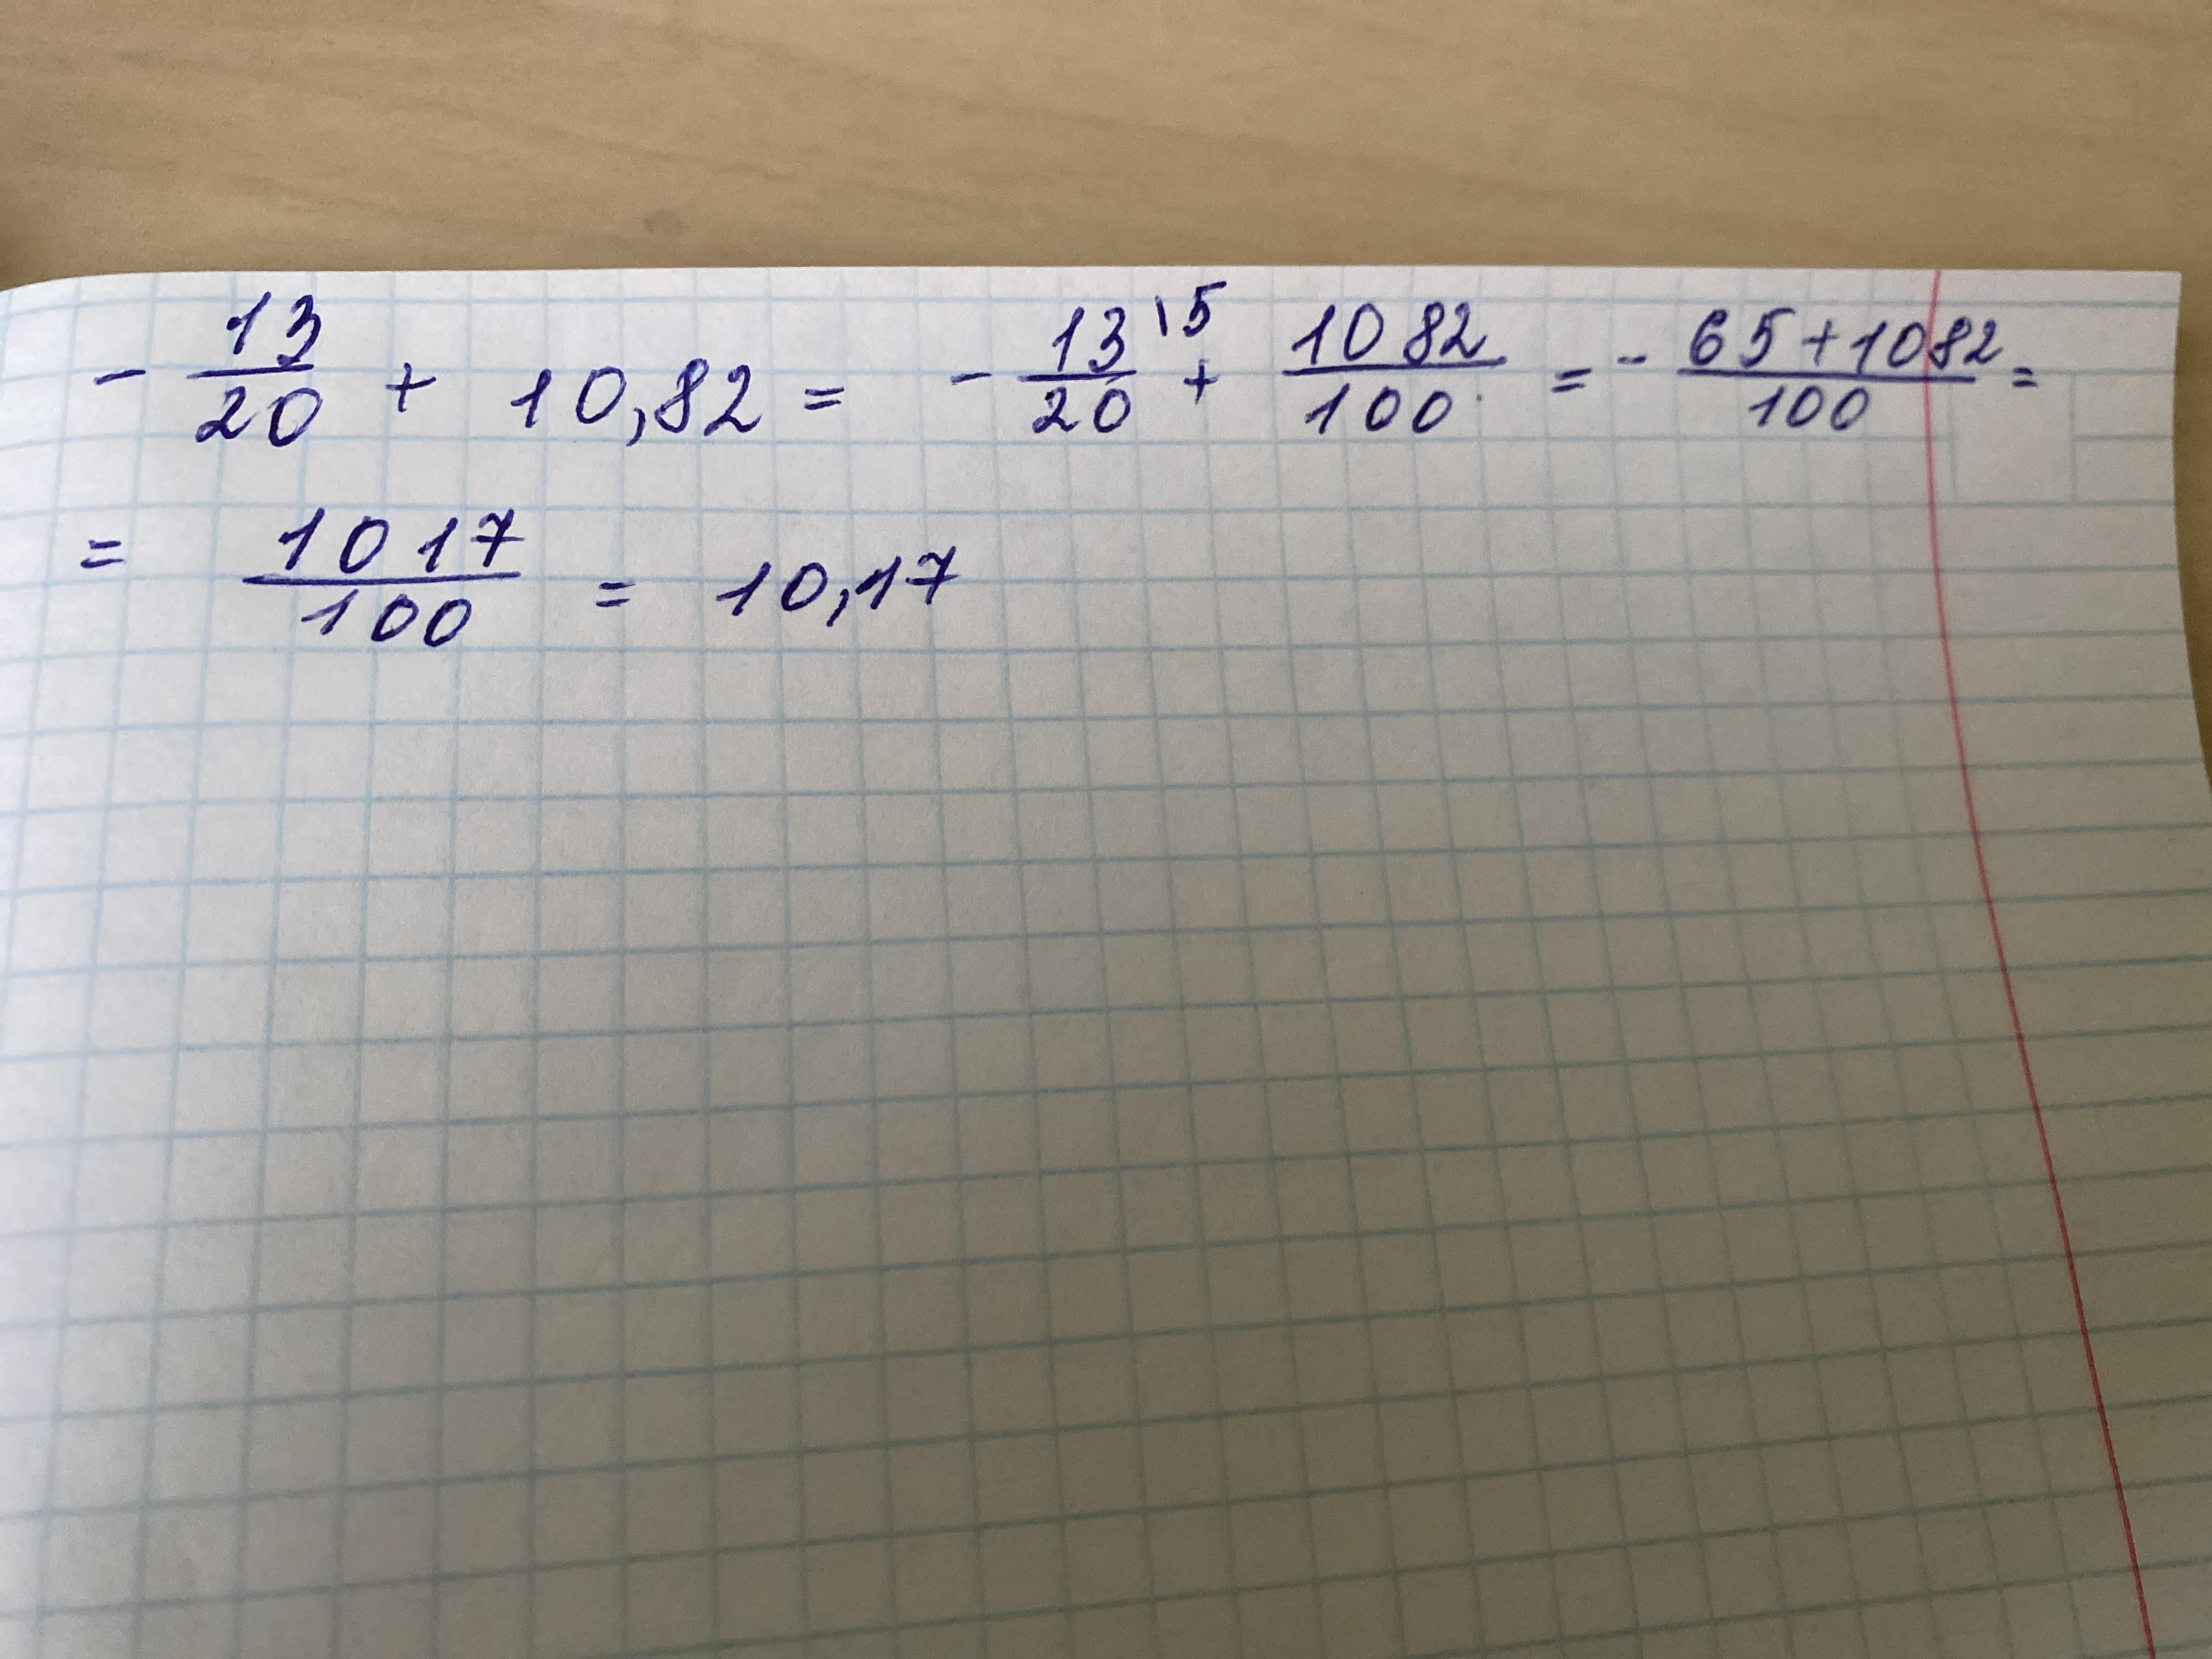 - 13/20 + 10,82 = - 13\5/20 + 1082/100 = - 65+1082/100 =
= 1017/100 = 10,17